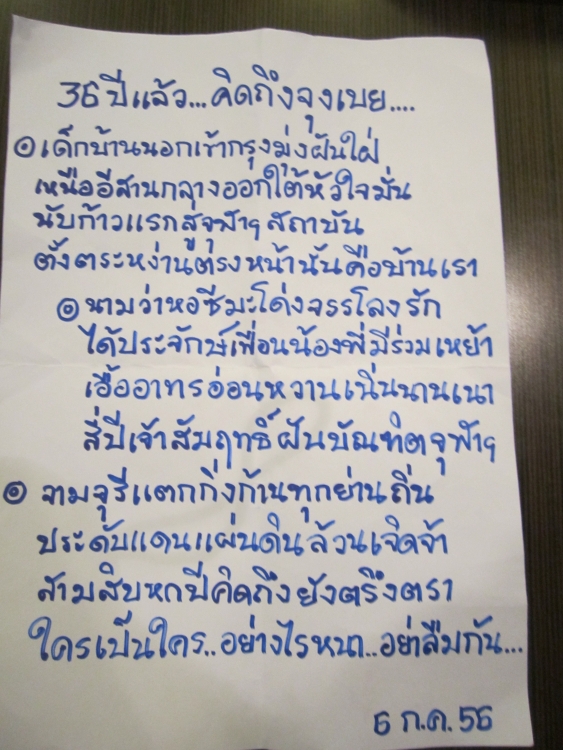 36 ปีแล้ว...คิดถึงจุงเบย....
๏ เด็กบ้านนอกเข้ากรุงมุ่งฝันใฝ่
เหนืออีสานกลางออกใต้หัวใจมั่น
นับก้าวแรกสู่จุฬาฯสถาบัน
ตั้งตระหง่านตรงหน้านั้นคือบ้านเรา
๏ นามว่าหอซีมะโด่งจรรโลงรัก
ได้ประจักษ์เพื่อนน้องพี่มีร่วมเหย้า
เอื้ออาทรอ่อนหวานเนิ่นนานเนา
สี่ปีเจ้าสัมฤทธิ์ฝันบัณฑิตจุฬาฯ
๏ จามจุรีแตกกิ่งก้านทุกย่านถิ่น
ประดับแดนแผ่นดินล้วนเจิดจ้า
สามสิบหกปีคิดถึงยังตรึงตรา
ใครเป็นใคร..อย่างไรหนา..อย่าลืมกัน...
6 ก.ค. 56